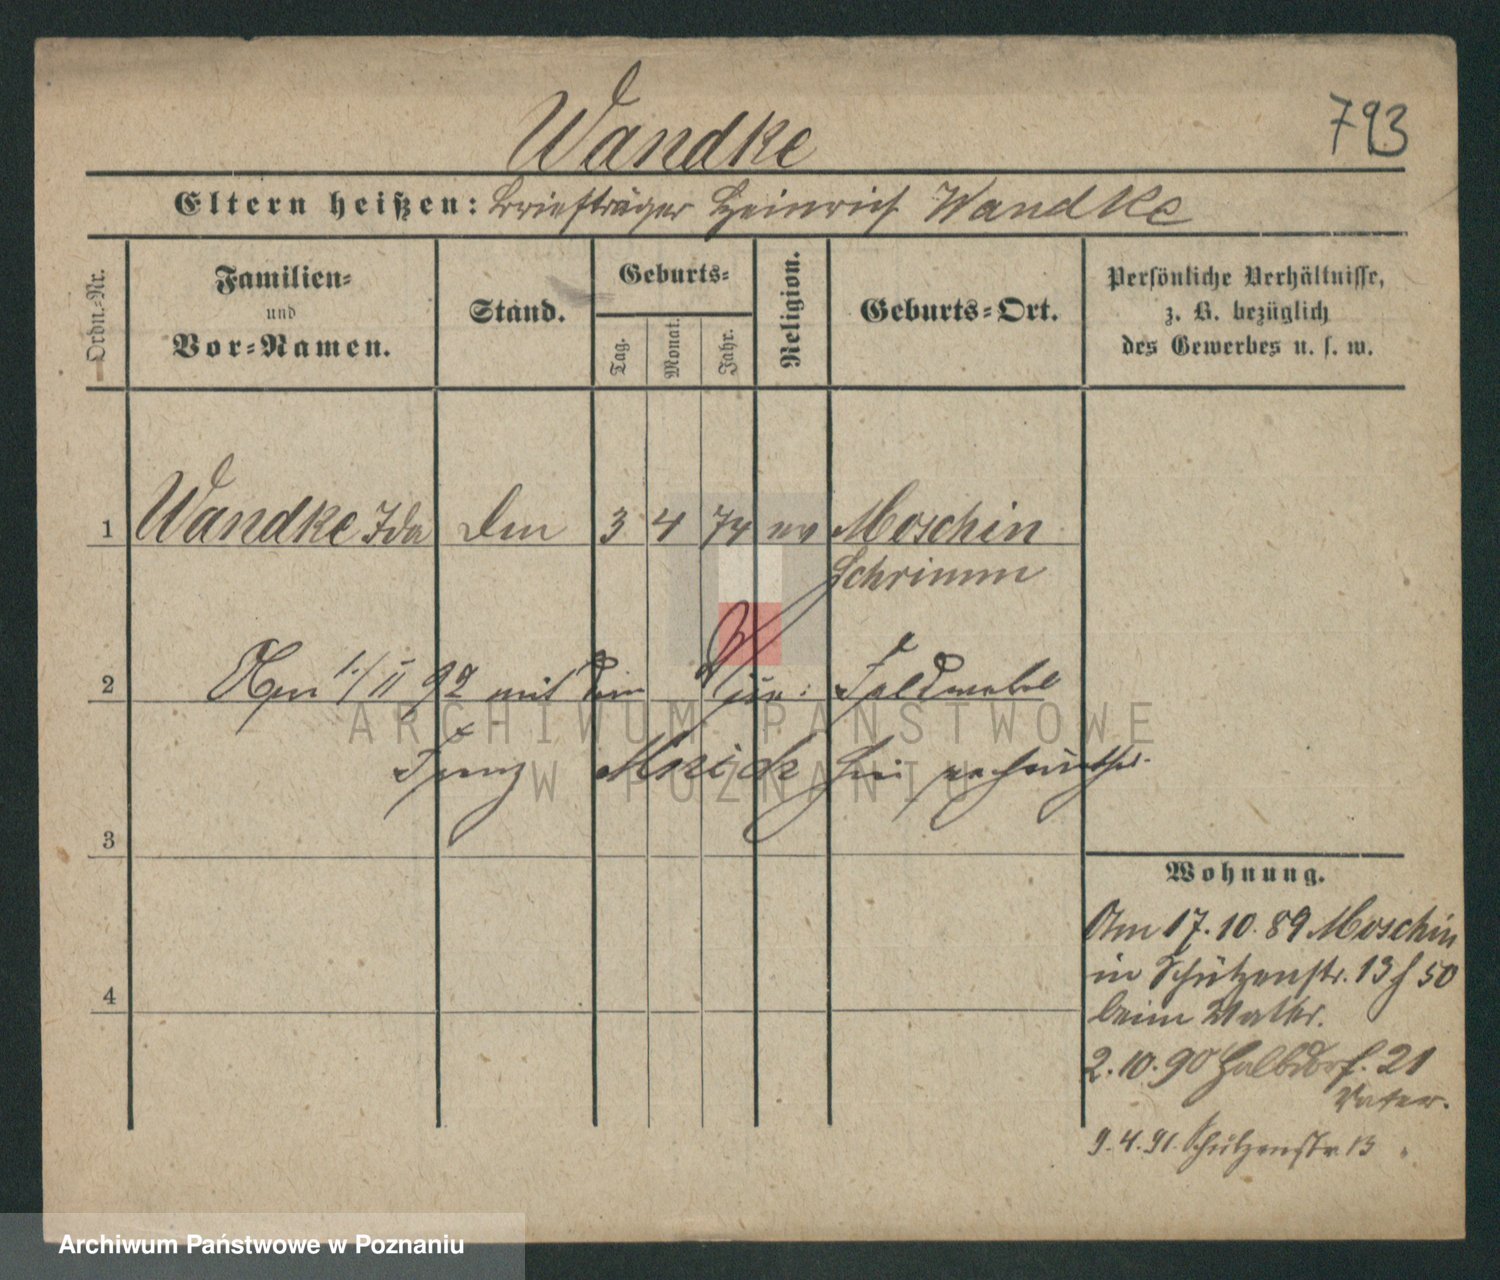 Wandke
793
Eltern heißen: Briefträger Heinrich Wandke
Ordn.-Nr.
Familien-
und
Vor-Namen.
Stand.
Geburts-
Tag.
Monat.
Jahr.
Religion.
Geburts-Ort.
Persönliche Verhältnisse,
z. B. bezüglich
des Gewerbes u. s. w.
1 Wandke Ida 3 4 74 ev Moschin
Schrimm
2 Am 1/II 92 mit dem Feldwebel
Franz
3
4
Wohnung.
Am 17.10.89 Moschin
in Schützenstr. 13 f 50
beim Vater.
2.10.90 Halbdorf. 21
Vater.
9.4.91. Schützenstr. 13
ARCHIWUM PAŃSTWOWE
W POZNANIU
Archiwum Państwowe w Poznaniu